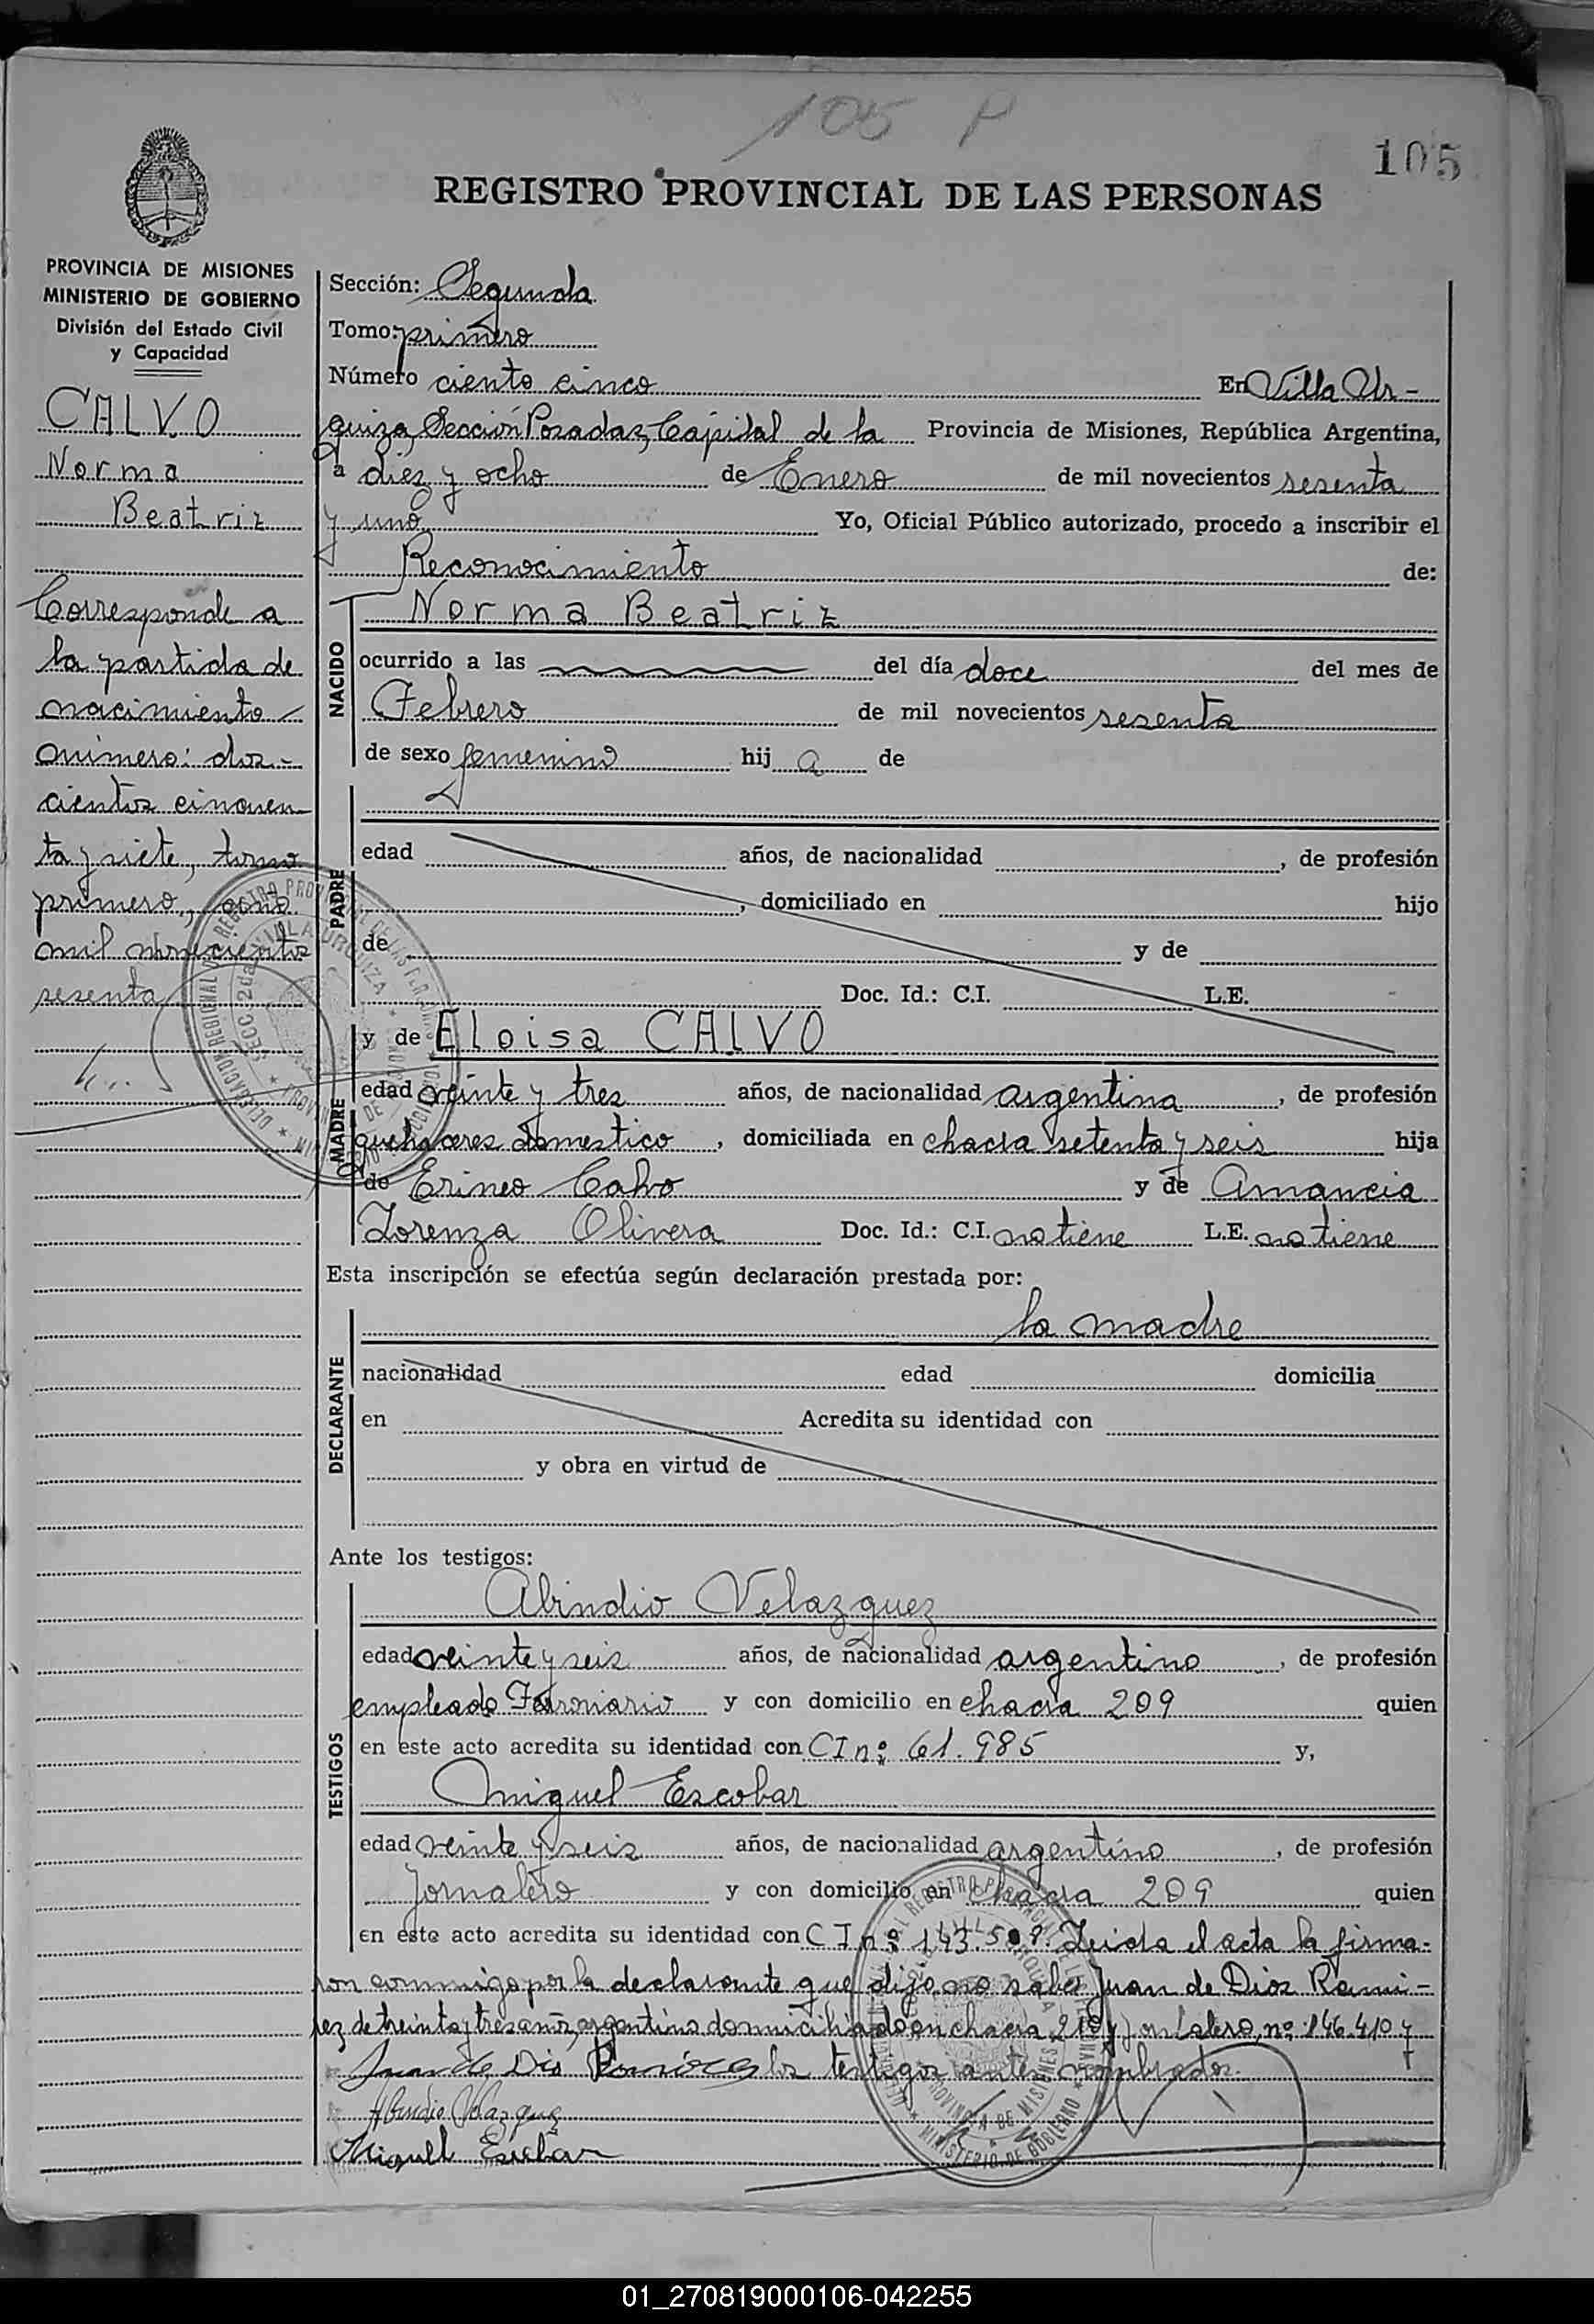 105 P
105
REGISTRO PROVINCIAL DE LAS PERSONAS
PROVINCIA DE MISIONES
MINISTERIO DE GOBIERNO
División del Estado Civil
y Capacidad
CALVO
Norma
Beatriz
Corresponde a
la partida de
nacimiento
número: dos-
cientos cincuen
ta y siete, tomo
primero, año
mil novecientos
sesenta
Sección: Segunda
Tomo: primero
Número ciento cinco En Villa Ur-
quiza, Sección Posadas, Capital de la Provincia de Misiones, República Argentina,
a diez y ocho de Enero de mil novecientos sesenta
y uno Yo, Oficial Público autorizado, procedo a inscribir el
Reconocimiento de:
NACIDO
Norma Beatriz
ocurrido a las del día doce del mes de
Febrero de mil novecientos sesenta
de sexo femenino hij a de
PADRE
edad años, de nacionalidad , de profesión
, domiciliado en hijo
de y de
Doc. Id.: C.I. L.E.
MADRE
y de Eloisa CALVO
edad veinte y tres años, de nacionalidad argentina , de profesión
quehaceres domestico , domiciliada en chacra setenta y seis hija
de Erineo Calvo y de Amancia
Lorenza Olivera Doc. Id.: C.I. no tiene L.E. no tiene
Esta inscripción se efectúa según declaración prestada por:
DECLARANTE
la madre
nacionalidad edad domicilia
en Acredita su identidad con
y obra en virtud de
Ante los testigos:
TESTIGOS
Abindio Velazquez
edad veinte y seis años, de nacionalidad argentino , de profesión
empleado Ferroviario y con domicilio en chacra 209 quien
en este acto acredita su identidad con CI nº 61.985 y,
Miguel Escobar
edad veinte y seis años, de nacionalidad argentino , de profesión
Jornalero y con domicilio en chacra 209 quien
en este acto acredita su identidad con CI nº Leida el acta la firma-
ron conmigo por la declarante que dijo no saber Juan de Dios Rami-
rez de treinta y tres años, argentino domiciliado en chacra 210 y Jornalero, nº 146.410 y
Juan de Dio Ramirez los testigos antes nombrados.
Abindio Velazquez
Miguel Escobar
01_270819000106-042255